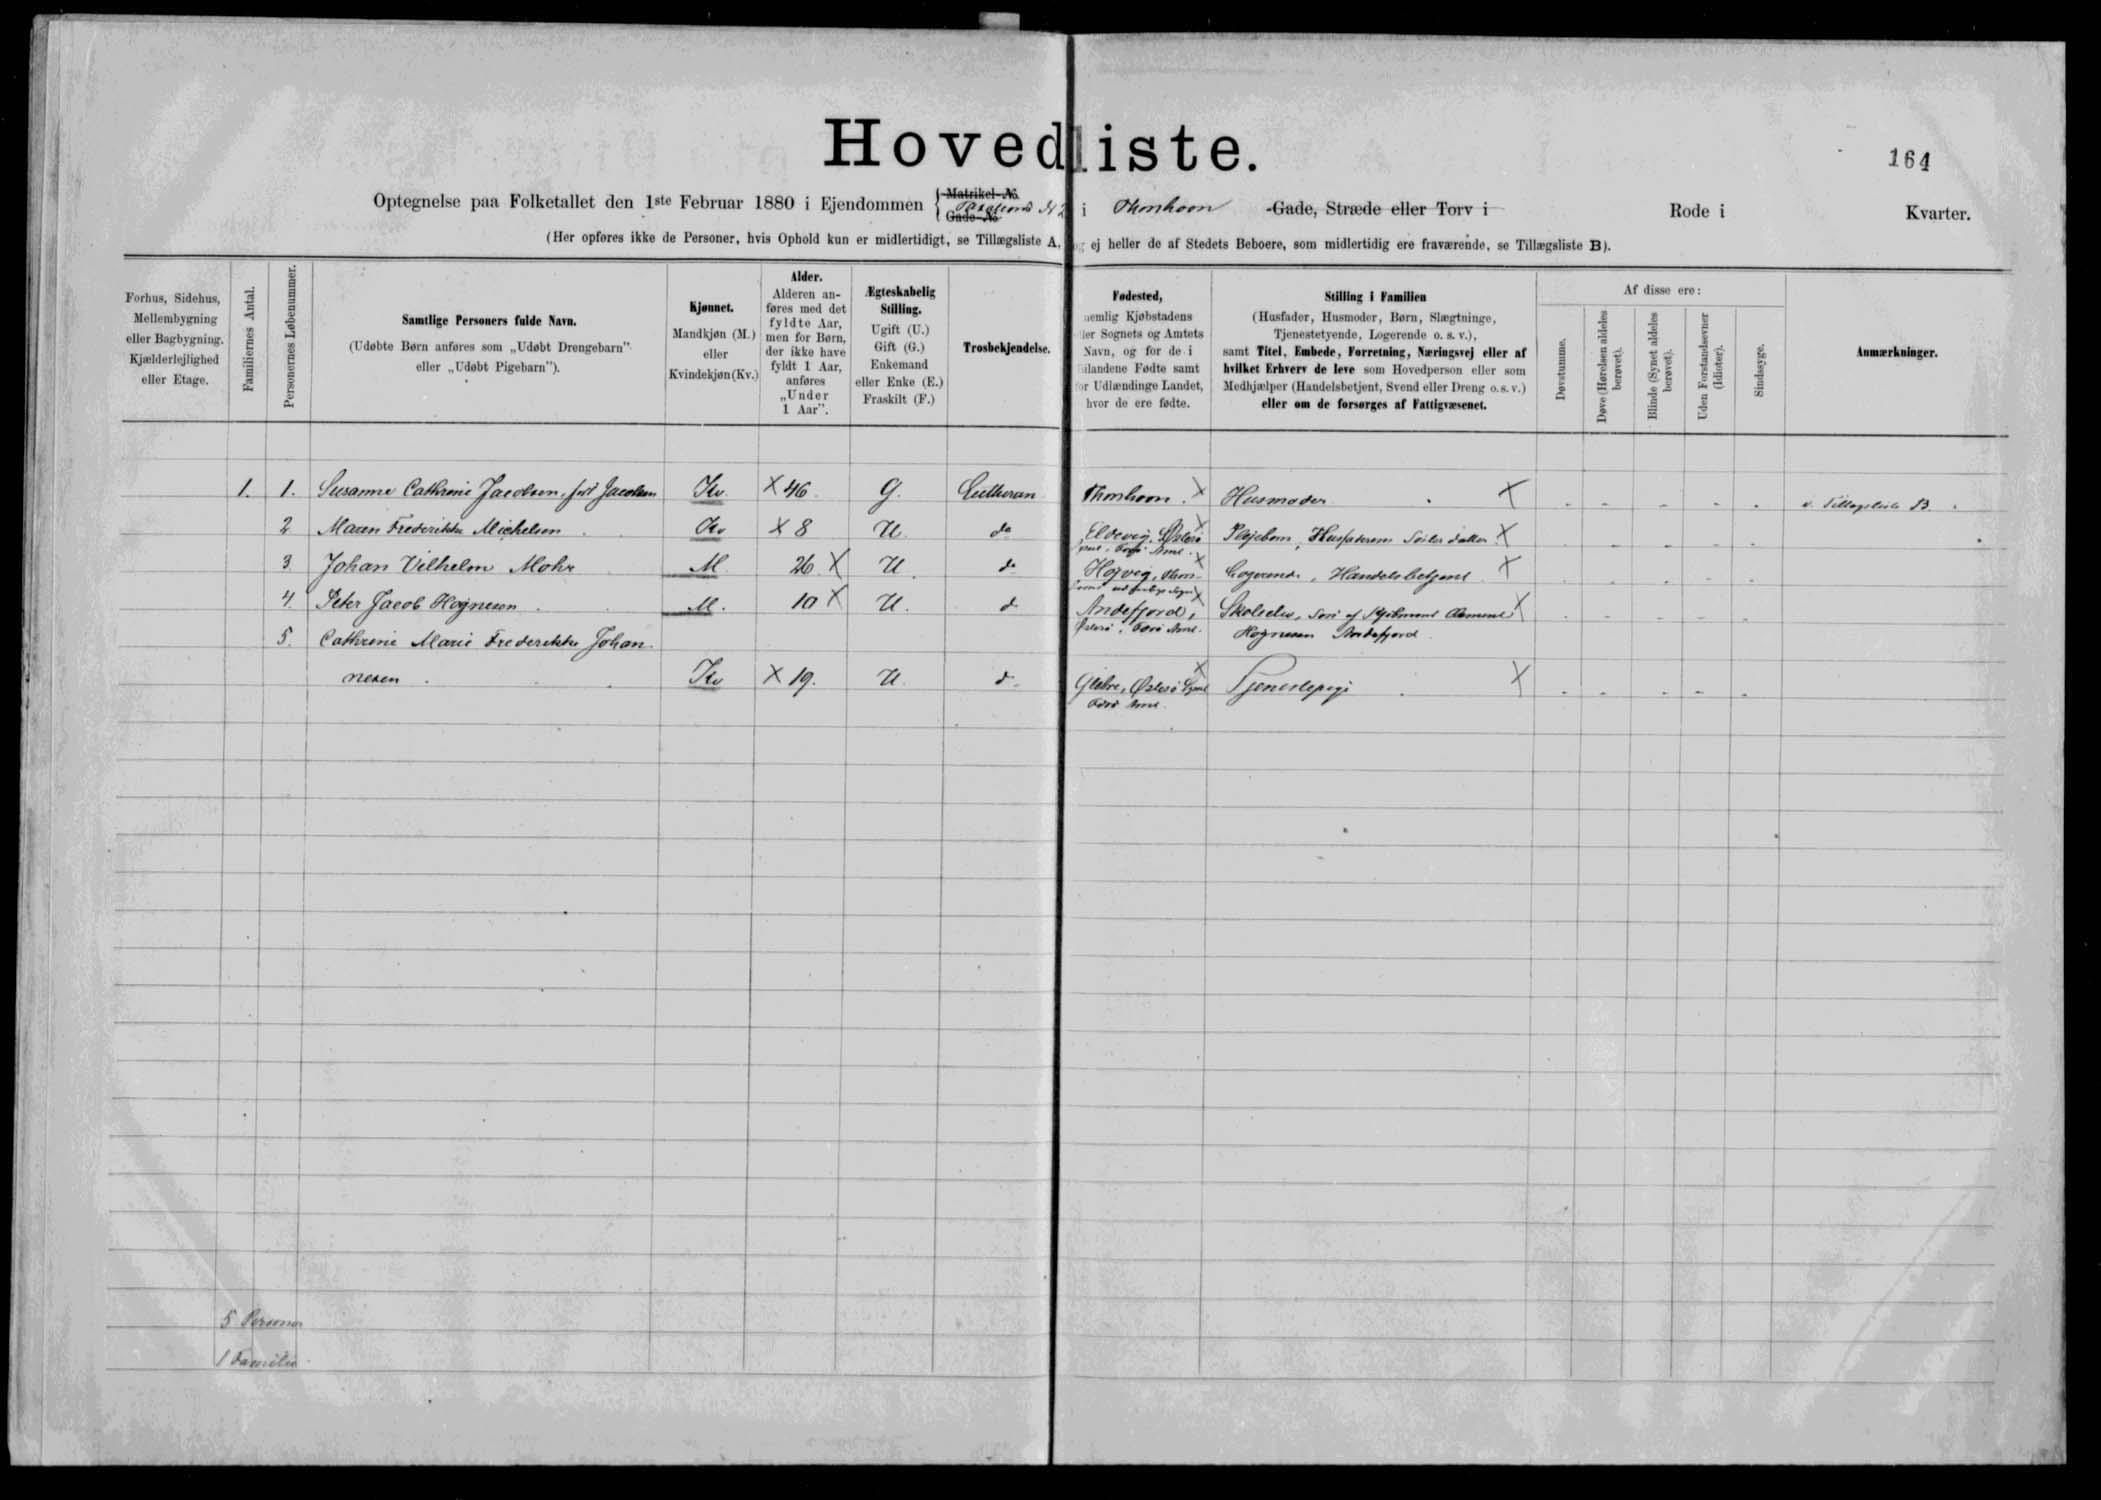 Hovedliste.
164
Optegnelse paa Folketallet den 1ste Februar 1880 i Ejendommen { Matrikel-No. Gade-No. i Thorshavn Gade, Stræde eller Torv i Rode i Kvarter.
(Her opføres ikke de Personer, hvis Ophold kun er midlertidigt, se Tillægsliste A, og ej heller de af Stedets Beboere, som midlertidig ere fraværende, se Tillægsliste B).
Forhus, Sidehus, Mellembygning eller Bagbygning. Kjælderlejlighed eller Etage.
Familiernes Antal.
Personernes Løbenummer.
Samtlige Personers fulde Navn.
(Udøbte Børn anføres som „Udøbt Drengebarn"
eller „Udøbt Pigebarn").
Kjønnet.
Mandkjøn (M.)
eller
Kvindekjøn (Kv.)
Alder.
Alderen an-
føres med det
fyldte Aar,
men for Børn,
der ikke have
fyldt 1 Aar,
anføres
„Under
1 Aar".
Ægteskabelig
Stilling.
Ugift (U.)
Gift (G.)
Enkemand
eller Enke (E.)
Fraskilt (F.)
Trosbekjendelse.
Fødested,
nemlig Kjøbstadens
ller Sognets og Amtets
Navn, og for de i
ilandene Fødte samt
for Udlændinge Landet,
hvor de ere fødte.
Stilling i Familien
(Husfader, Husmoder, Børn, Slægtninge,
Tjenestetyende, Logerende o. s. v.),
samt Titel, Embede, Forretning, Næringsvej eller af
hvilket Erhverv de leve som Hovedperson eller som
Medhjælper (Handelsbetjent, Svend eller Dreng o. s. v.)
eller om de forsørges af Fattigvæsenet.
Af disse ere:
Døvstumme.
Døve (Hørelsen aldeles berøvet).
Blinde (Synet aldeles berøvet).
Uden Forstandsevner (Idioter).
Sindssyge.
Anmærkninger.
1. 1. Susanne Cathrine Jacobsen, født Jacobsen Kv. X 46 G. Lutheran Thorshavn X Husmoder X v. Tillægsliste B.
2 Maren Frederikke Michelsen Kv X 8 U. do Eldevig, Østerø X Plejebarn, Husfaderens Søsterdatter X
Syssel, Færø Amt.
3. Johan Vilhelm Mohr M 26 X U. do Hojvig, X Logerende, Handelsbetjent X
4. Peter Jacob Høgnesen M. 10 X U. do Andefjord, X Skoleelev, Søn af X
Østerø, Færø Amt. Høgnesen Andefjord
5. Cathrine Marie Frederikke Johan-
nesen Kv X 19. U. do Glibre, Østerø Syssel X Tjenestepige X
Færø Amt.
5 Personer
1 Familie